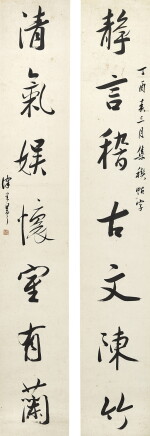 丁酉春三月集禊帖字
靜言稽古文陳竹
清氣娛懷室有蘭